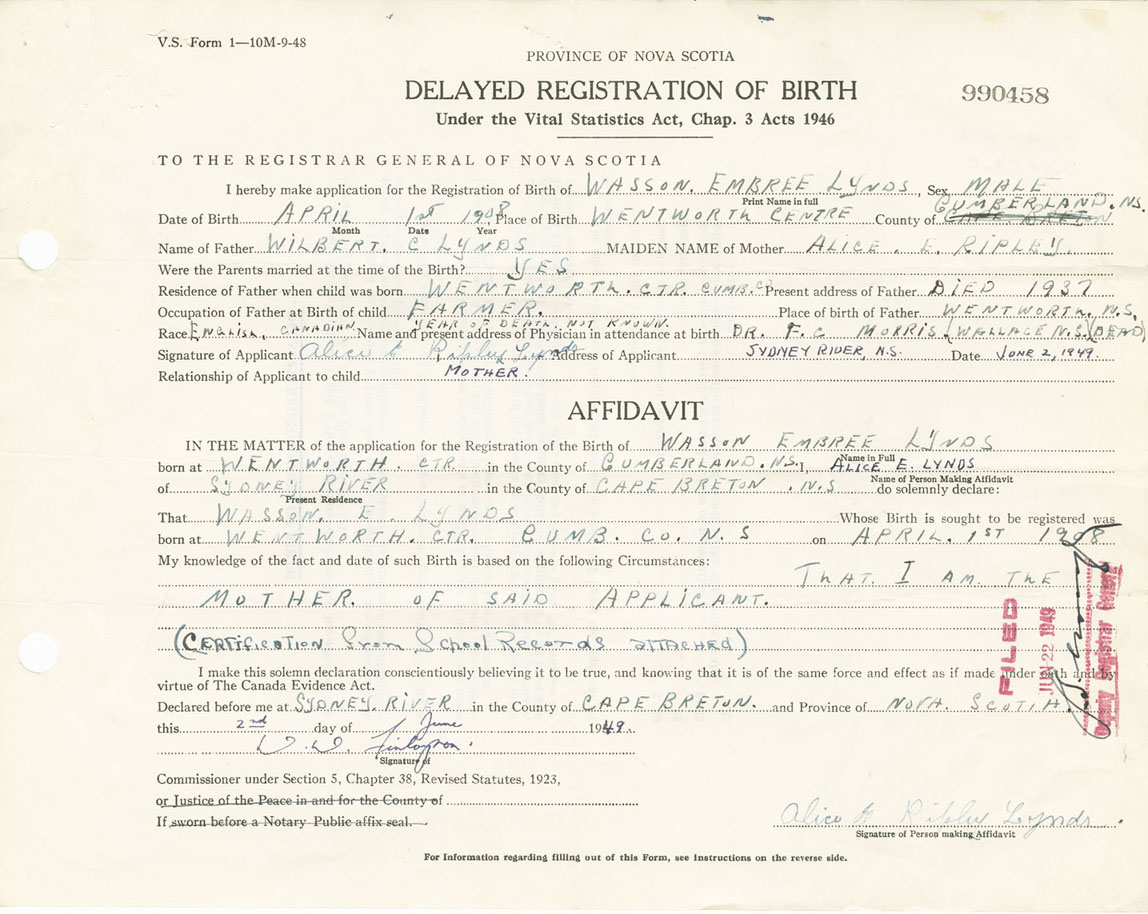 V.S. Form 1—10M-9-48
PROVINCE OF NOVA SCOTIA
DELAYED REGISTRATION OF BIRTH
990458
Under the Vital Statistics Act, Chap. 3 Acts 1946
TO THE REGISTRAR GENERAL OF NOVA SCOTIA
I hereby make application for the Registration of Birth of WASSON. EMBREE LYNDS, Sex MALE
Print Name in full
CUMBERLAND. NS.
Date of Birth APRIL 1st 1908, Place of Birth WENTWORTH CENTRE County of CAPE BRETON
Month Date Year
Name of Father WILBERT. C LYNDS MAIDEN NAME of Mother ALICE. E. RIPLEY.
Were the Parents married at the time of the Birth? YES
Residence of Father when child was born WENTWORTH. CTR. CUMB. Co Present address of Father DIED 1937
Occupation of Father at Birth of child FARMER. Place of birth of Father WENTWORTH. N.S.
YEAR OF DEATH. NOT KNOWN.
Race ENGLISH, CANADIAN Name and present address of Physician in attendance at birth DR. F. C MORRIS (WALLACE N.S.) (DEAD)
Signature of Applicant Alice E Ripley Lynds Address of Applicant SYDNEY RIVER, N.S. Date JUNE 2, 1949.
Relationship of Applicant to child MOTHER.
AFFIDAVIT
IN THE MATTER of the application for the Registration of the Birth of WASSON EMBREE LYNDS
Name in Full
born at WENTWORTH. CTR in the County of CUMBERLAND. NS. I, ALICE E. LYNDS
Name of Person Making Affidavit
of SYDNEY RIVER in the County of CAPE BRETON. N.S do solemnly declare:
Present Residence
That WASSON. E. LYNDS Whose Birth is sought to be registered was
born at WENTWORTH. CTR. CUMB. CO. N. S on APRIL. 1ST 1908
My knowledge of the fact and date of such Birth is based on the following Circumstances:
THAT. I AM THE
MOTHER. OF SAID APPLICANT.
(CERTIFICATION From School Records attached)
FILED
JUN 22 1949
Deputy Registrar General
I make this solemn declaration conscientiously believing it to be true, and knowing that it is of the same force and effect as if made under oath and by
virtue of The Canada Evidence Act.
Declared before me at SYDNEY. RIVER in the County of CAPE BRETON. and Province of NOVA. SCOTIA.
this 2nd day of June 1949.
Finlayson.
Signature of
Commissioner under Section 5, Chapter 38, Revised Statutes, 1923,
or Justice of the Peace in and for the County of
If sworn before a Notary Public affix seal.
Alice E Ripley Lynds.
Signature of Person making Affidavit
For Information regarding filling out of this Form, see instructions on the reverse side.